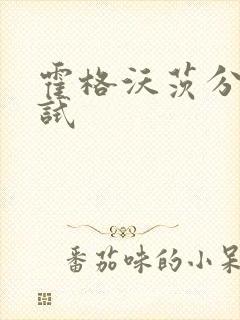 霍格沃茨分
試
番茄味的小呆